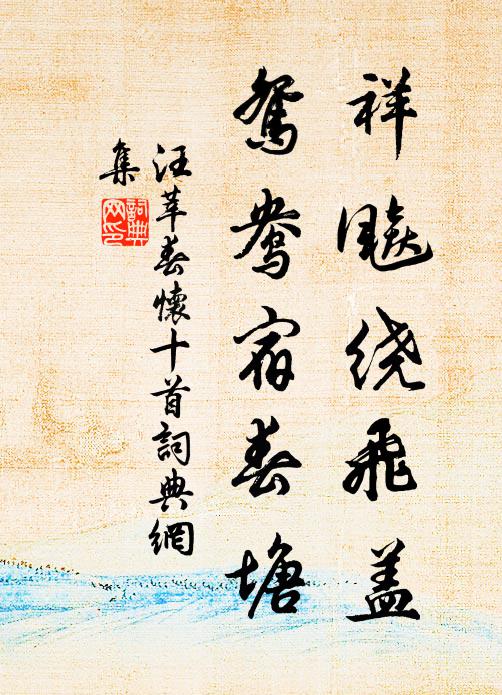 祥飈绕飛盖
鴛鴦宿春塘
汪莘春懷十首詞典網
集
詞典网印